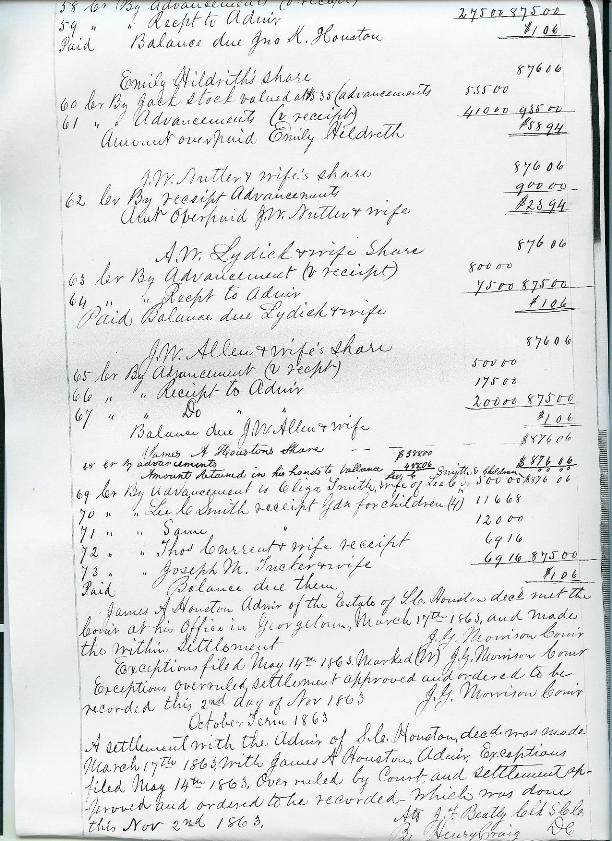 58 Cr By Advancements (v receipt)
59 " " Recpt to Admr 27500 87500
Paid Balance due Jno K. Houston $106
Emily Hildriths share 87606
60 Cr By Jack stock valued at $535 (advancements 53500
61 " " Advancements (v receipt) 41000 93500
Amount overpaid Emily Hildreth $5894
J.W. Nutter & wife's share 87606
62 Cr By receipt Advancements 90000
Amt Overpaid J.W. Nutter & wife $2394
A.W. Lydick & wife Share 87606
63 Cr By Advancement (v receipt) 80000
64 " " Recpt to Admr 7500 87500
Paid Balance due Lydick & wife $106
J.W. Allen & wife's share 87606
65 Cr By Advancement (v recpt) 50000
66 " " Receipt to Admr 17500
67 " " Do " " 20000 87500
Balance due J.W. Allen & wife $106
James A Houstons Share $87606
68 Cr By advancements $38800
Amount Retained in his hands to ballance 48806 $87606
Lee C Smith & Children
69 Cr By Advancement to Eliza Smith, wife of Lee C 50000 $87606
70 " " Lee C Smith receipt Gdn for children (4) 11668
71 " " Same " 12000
72 " " Thos Current & wife receipt 6916
73 " " Joseph M. Tucker & wife 6916 87500
Paid Balance due them $106
James A Houston Admr of the Estate of S.C. Houston decd met the
Comr at his Office in Georgetown, March 17th 1863, and made
the within settlement J.G. Morrison Comr
Exceptions filed May 14th 1863. Marked (W) J.G. Morrison Comr
Exceptions overruled, settlement approved and ordered to be
recorded this 2nd day of Nov 1863 J.G. Morrison Comr
October Term 1863
A settlement with the Admr of S.C. Houston, decd was made
March 17th 1863 with James A Houston, Admr, Exceptions
filed May 14th 1863. Overruled by Court and settlement ap-
proved and ordered to be recorded - which was done
this Nov 2nd 1863. Att Beatty Clk S.C.C.
By Henry Craig DC